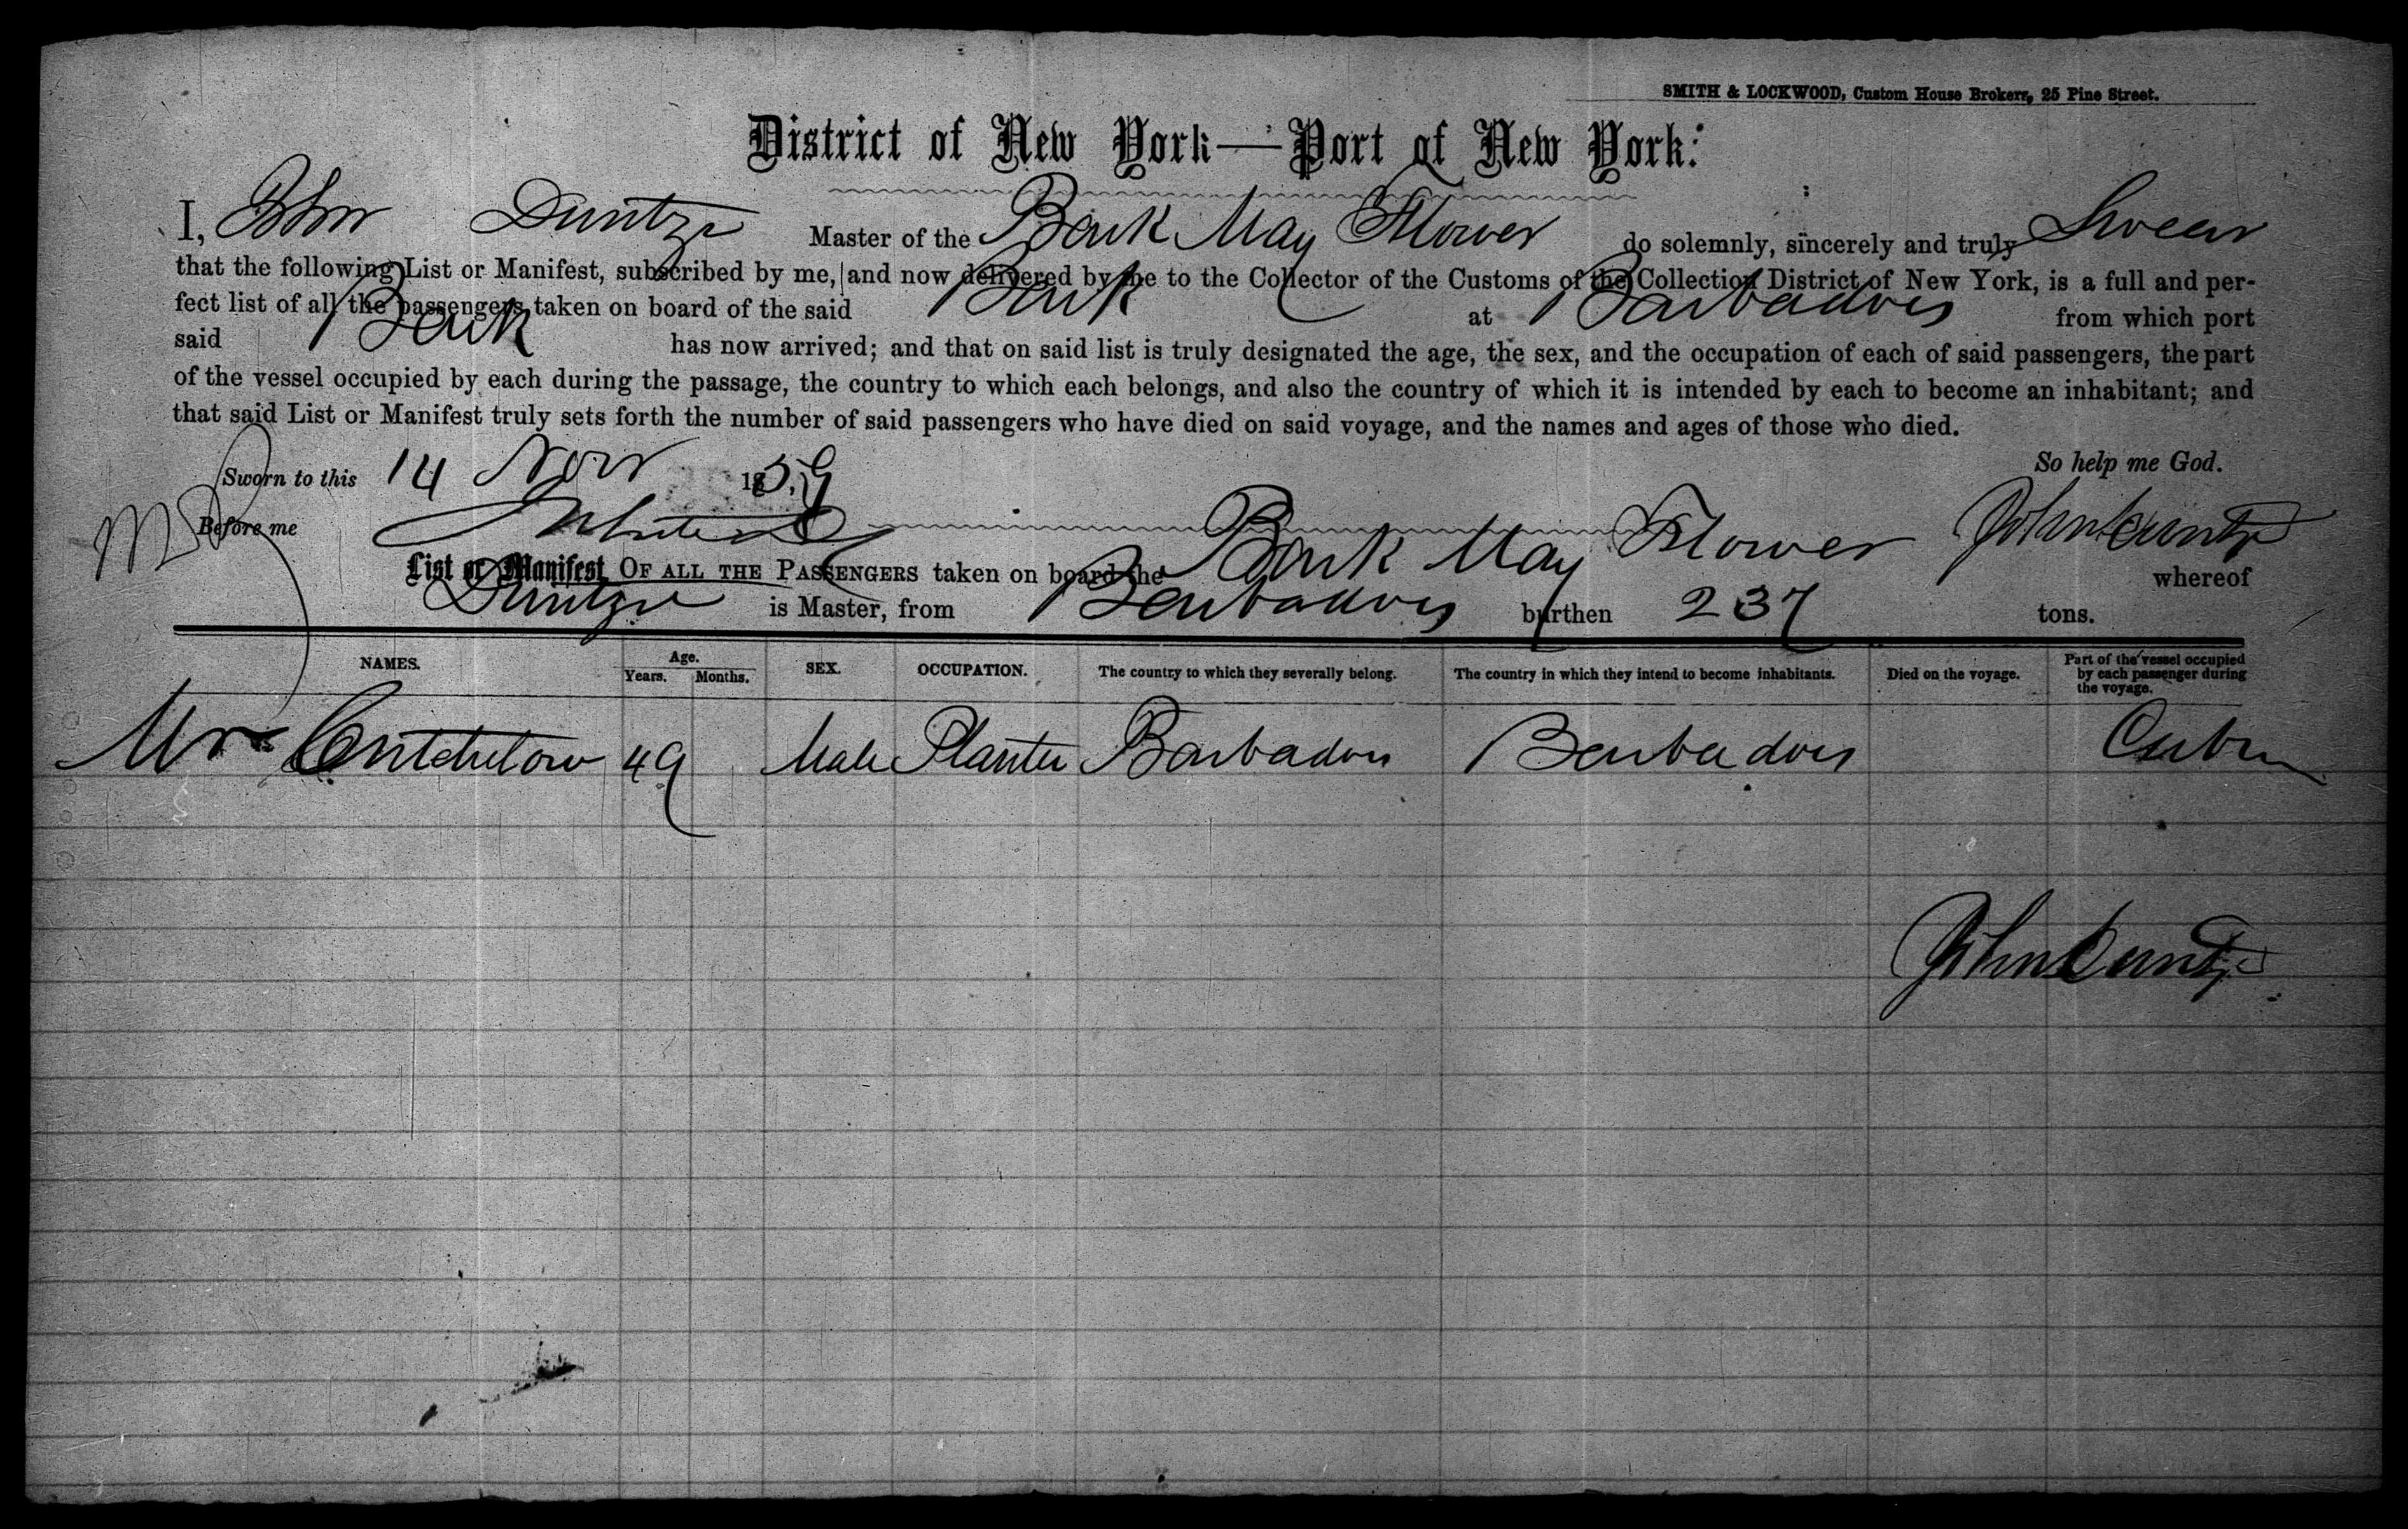 SMITH & LOCKWOOD, Custom House Brokers, 25 Pine Street.
District of New York—Port of New York:
I, John Duntze Master of the Bark May Flower do solemnly, sincerely and truly Swear
that the following List or Manifest, subscribed by me, and now delivered by me to the Collector of the Customs of the Collection District of New York, is a full and per-
fect list of all the passengers taken on board of the said Bark at Barbadoes from which port
said Bark has now arrived; and that on said list is truly designated the age, the sex, and the occupation of each of said passengers, the part
of the vessel occupied by each during the passage, the country to which each belongs, and also the country of which it is intended by each to become an inhabitant; and
that said List or Manifest truly sets forth the number of said passengers who have died on said voyage, and the names and ages of those who died.
Sworn to this 14 Nov 1859 So help me God.
Before me John Duntze
List or Manifest OF ALL THE PASSENGERS taken on board the Bark May Flower whereof
Duntze is Master, from Barbadoes burthen 237 tons.
NAMES. Age. Years. Months. SEX. OCCUPATION. The country to which they severally belong. The country in which they intend to become inhabitants. Died on the voyage. Part of the vessel occupied by each passenger during the voyage.
Mr 49 Male Planter Barbadoes Barbadoes Cabin
John Duntze